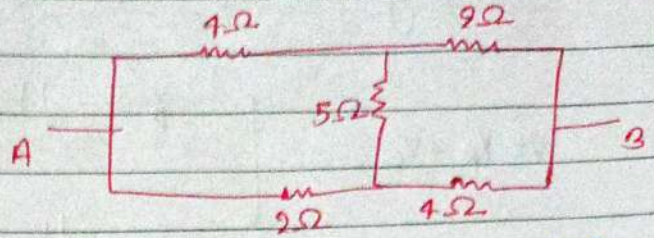 4Ω 9Ω
5Ω
A B
2Ω 4Ω